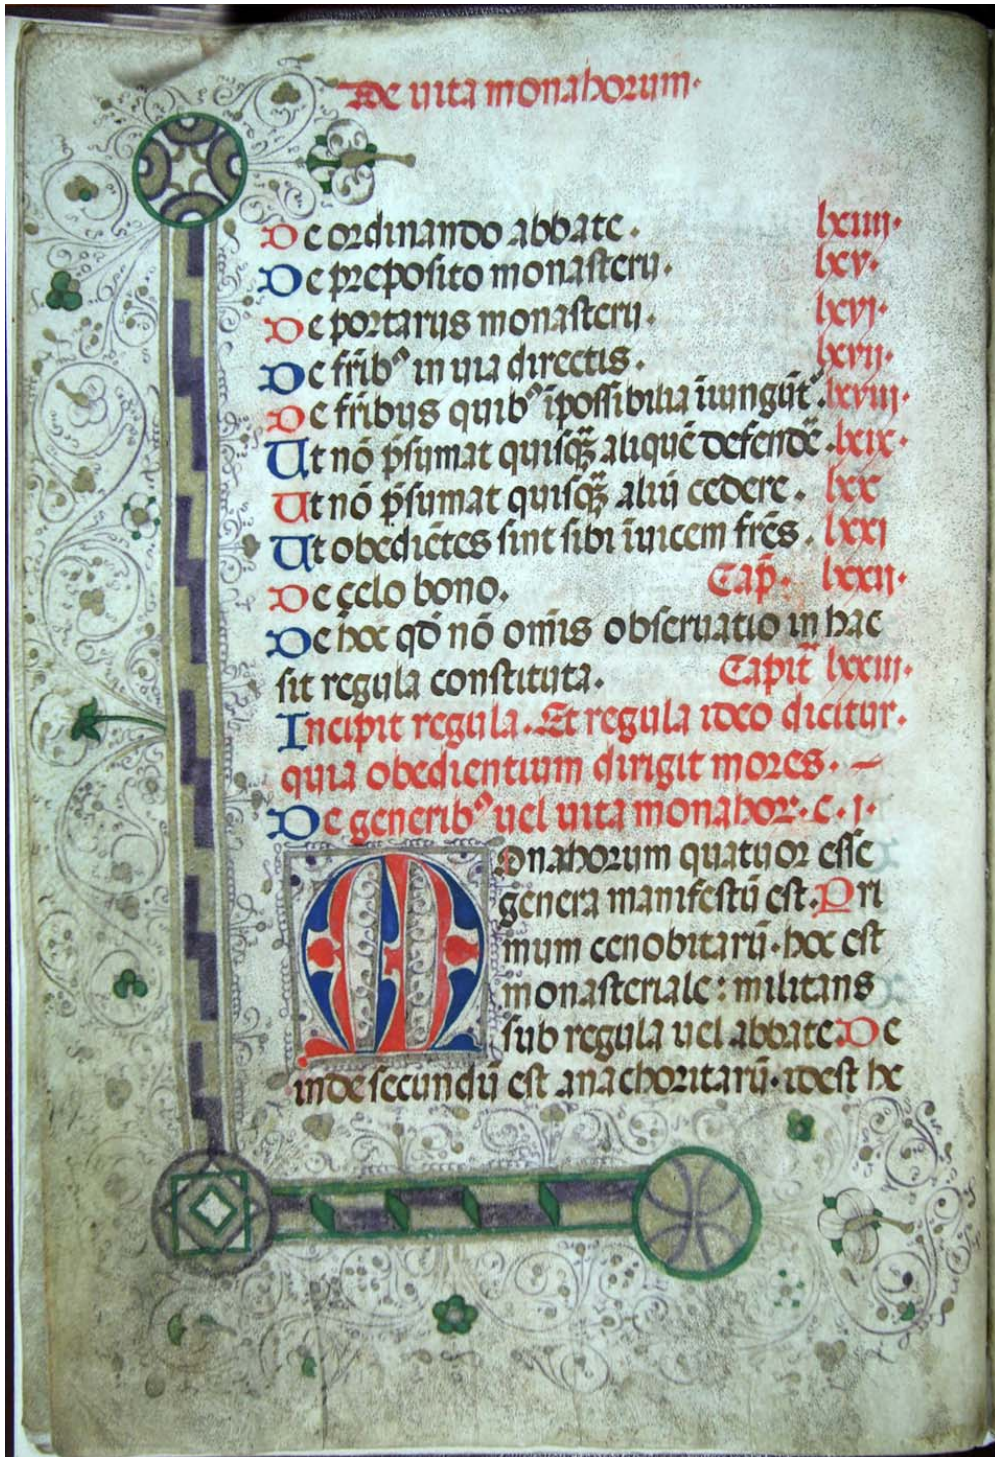 De uita monahorum·
De ordinando abbate . lxiiii·
De preposito monasterij . lxv·
De portarijs monasterij . lxvi·
De fr̄ibꝰ in uia directis . lxvii·
De fr̄ibus quibꝰ īpossibilia īiungūt᷑ . lxviii·
Ut nō p̄sumat quisqꝫ̄ aliquē defendē᷑ . lxix·
Ut nō p̄sumat quisqꝫ̄ aliū cedere . lxx
Ut obediētes sint sibi īuicem frēs . lxxi
De çelo bono . Cap̄· lxxii·
De hoc qđ nō om̄is obseruatio in hac
sit regula constituta . Capit̄ lxxiii·
Incipit regula . Et regula ideo dicitur.
quia obedientium dirigit mores . —
De generibꝰ uel uita monahor· c· i·
Monahorum quatuor esse
genera manifestū est . Pri
mum cenobitarū · hoc est
monasteriale : militans
sub regula uel abbate . De
inde secundū est anachoritarū · idest he